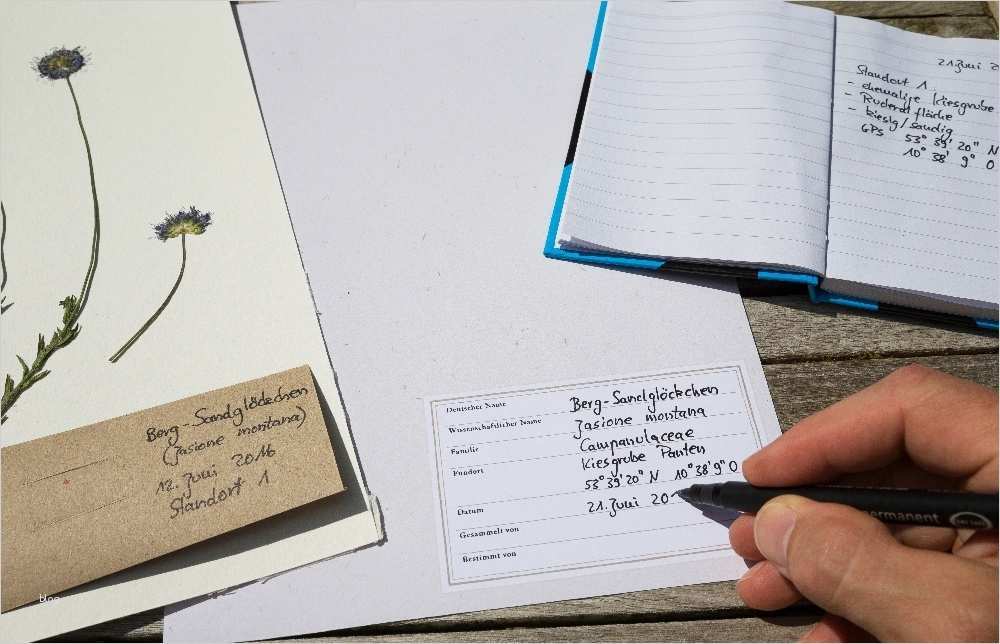 21. Juni 2
Standort 1
- ehemalige Kiesgrube
- Ruderalfläche
- kiesig/sandig
GPS 53° 39' 20" N
10° 38' 9" O
Berg-Sandglöckchen
(Jasione montana)
12. Juni 2016
Standort 1
Deutscher Name Berg-Sandglöckchen
Wissenschaftlicher Name Jasione montana
Familie Campanulaceae
Fundort Kiesgrube Panten
53° 39' 20" N 10° 38' 9" O
Datum 21. Juni 20
Gesammelt von
Bestimmt von
permanent